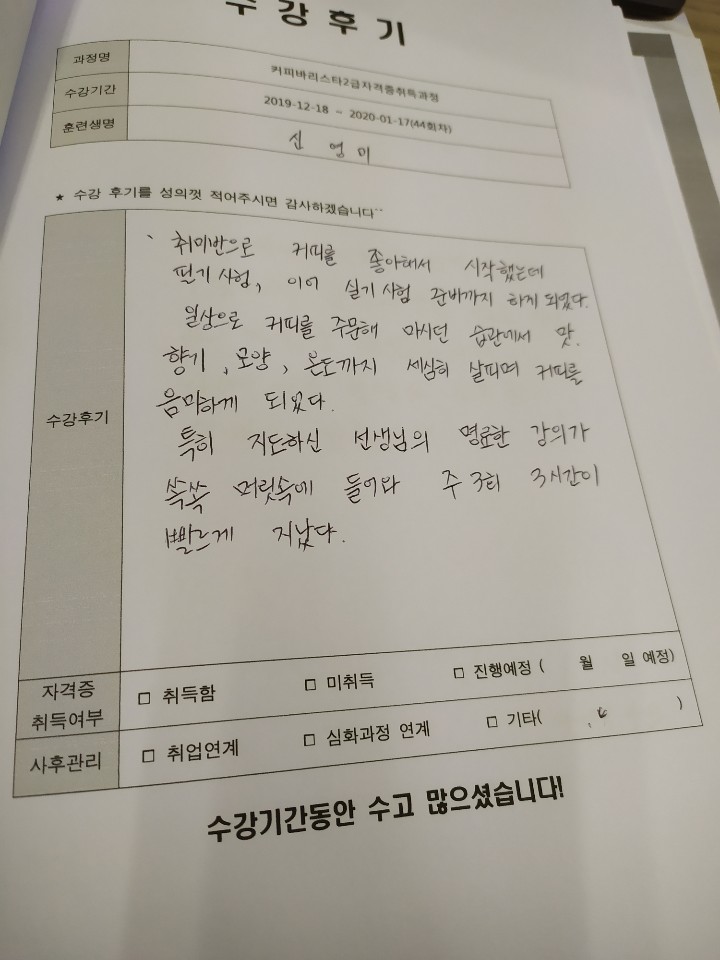 수강후기
과정명 커피바리스타2급자격증취득과정
수강기간 2019-12-18 ~ 2020-01-17(44회차)
훈련생명 신영미
★ 수강 후기를 성의껏 적어주시면 감사하겠습니다^^
수강후기
취미반으로 커피를 좋아해서 시작했는데
필기시험, 이어 실기시험 준비까지 하게 되었다.
일상으로 커피를 주문해 마시던 습관에서 맛.
향기, 모양, 온도까지 세심히 살피며 커피를
음미하게 되었다.
특히 지도하신 선생님의 명료한 강의가
쏙쏙 머릿속에 들어와 주 3회 3시간이
빠르게 지났다.
자격증
취득여부 □ 취득함 □ 미취득 □ 진행예정 ( 월 일 예정)
사후관리 □ 취업연계 □ 심화과정 연계 □ 기타( )
수강기간동안 수고 많으셨습니다!